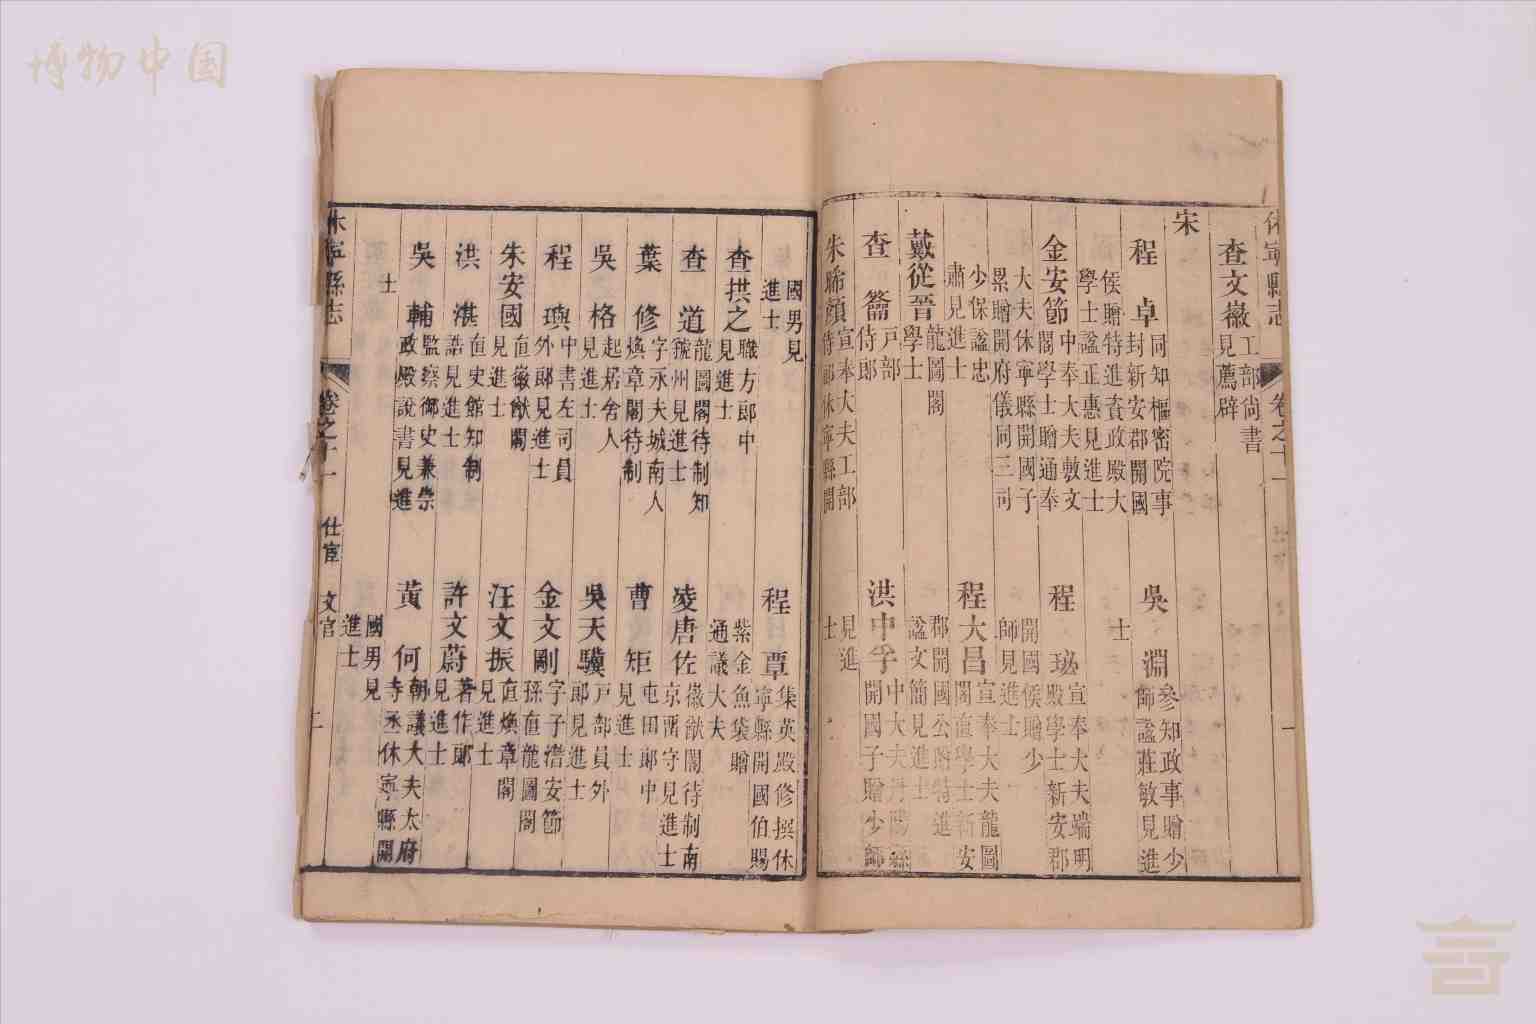 博物中国
休寧縣志 卷之十一 一
查文徽 工部尙書
見薦辟
宋
程卓 同知樞密院事
封新安郡開國
侯贈特進資政殿大
學士諡正惠見進士
吳淵 參知政事贈少
師諡莊敏見進
士
金安節 中奉大夫敷文
閣學士贈通奉
大夫休寧縣開國子
累贈開府儀同三司
程珌 宣奉大夫端明
殿學士新安郡
開國侯贈少
師見進士
少保諡忠
肅見進士
程大昌 宣奉大夫龍圖
閣直學士新安
郡開國公贈特進
諡文簡見進士
戴從晉 龍圖閣
學士
查籥 戶部
侍郎
洪中孚 中大夫丹陽縣
開國子贈少師
見進
士
朱晞顏 宣奉大夫工部
侍郎休寧縣開
國男見
進士
程覃 集英殿修撰休
寧縣開國伯賜
紫金魚袋贈
通議大夫
查拱之 職方郎中
見進士
查道 龍圖閣待制知
虢州見進士
凌唐佐 徽猷閣待制南
京畱守見進士
葉修 字永夫城南人
煥章閣待制
曹矩 屯田郎中
見進士
吳格 起居舍人
見進士
吳天驥 戶部員外
郎見進士
程璵 中書左司員
外郎見進士
金文剛 字子潛安節
孫直龍圖閣
朱安國 直徽猷閣
見進士
汪文振 直煥章閣
見進士
洪湛 直史館知制
誥見進士
許文蔚 著作郎
見進士
吳輔 監察御史兼崇
政殿說書見進
士
黃何 朝議大夫太府
寺丞休寧縣開
國男見
進士
休寧縣志 卷之十一 仕宦 文官 二